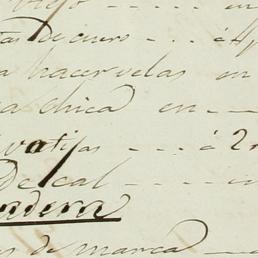 viejo - - - - - en
tas de cuero - - - á
a hacer velas en
a chica en - -
vatijas - - - á 2
De cal - - -
adera
s de marca -